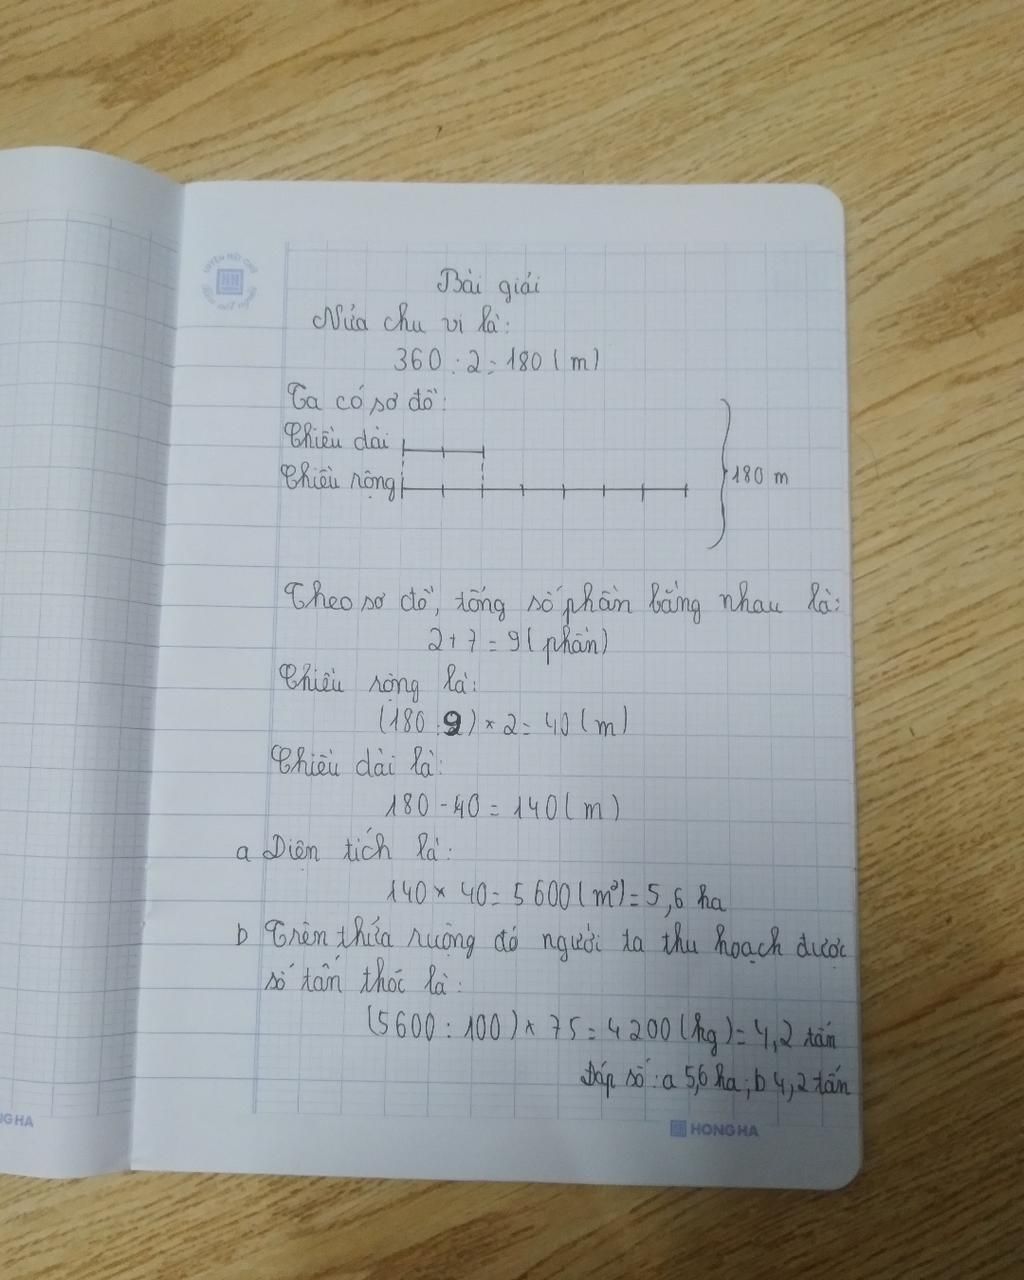 Bài giải
Nửa chu vi là:
360 : 2 = 180 (m)
Ta có sơ đồ:
Chiều dài
Chiều rộng
180 m
Theo sơ đồ, tổng số phần bằng nhau là:
2 + 7 = 9 (phần)
Chiều rộng là:
(180 : 9) × 2 = 40 (m)
Chiều dài là:
180 - 40 = 140 (m)
a Diện tích là:
140 × 40 = 5 600 (m²) = 5,6 ha
b Trên thửa ruộng đó người ta thu hoạch được
số tấn thóc là:
(5600 : 100) × 75 = 4 200 (kg) = 4,2 tấn
Đáp số: a 5,6 ha; b 4,2 tấn
HONG HA
NG HA